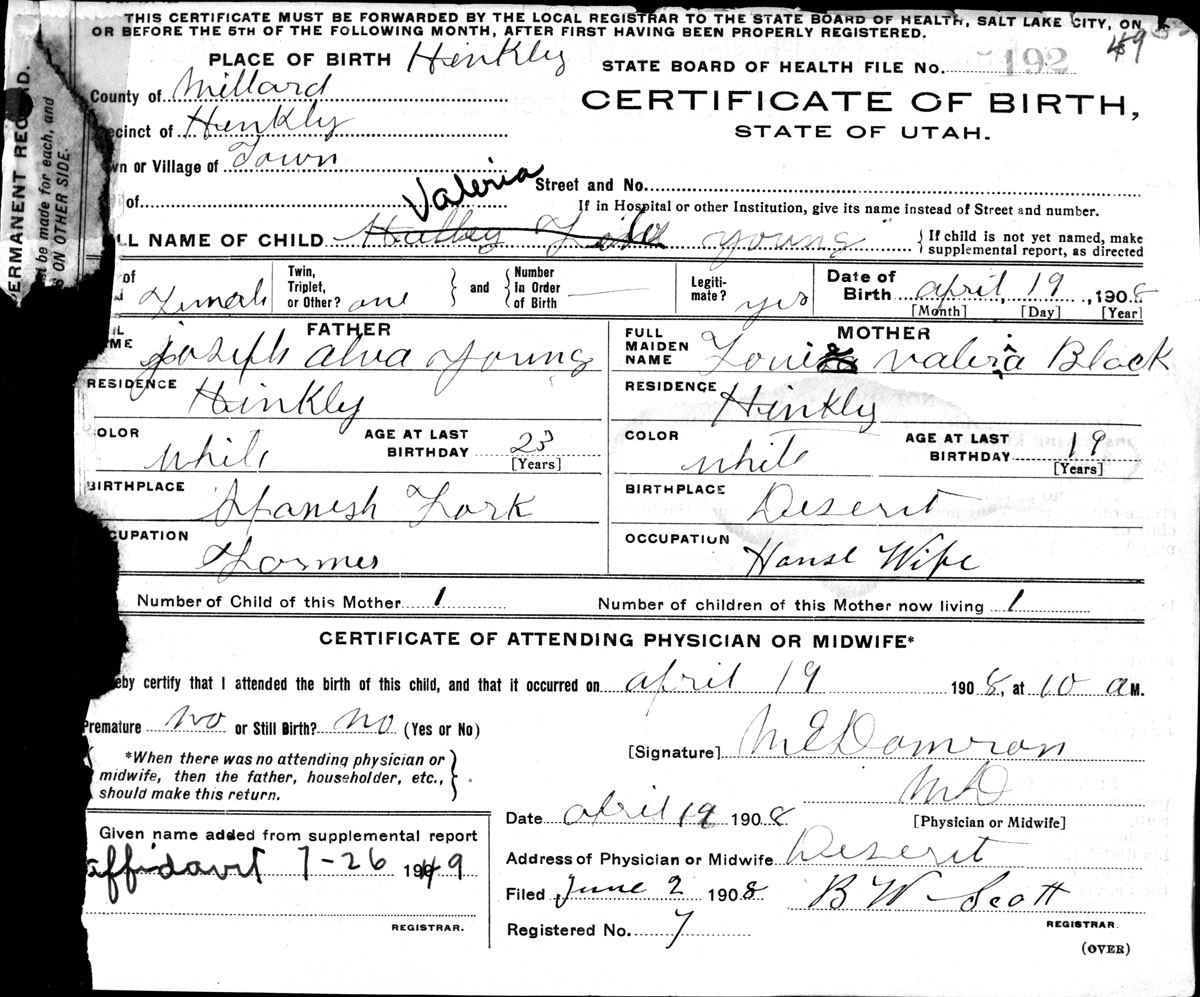 THIS CERTIFICATE MUST BE FORWARDED BY THE LOCAL REGISTRAR TO THE STATE BOARD OF HEALTH, SALT LAKE CITY, ON
OR BEFORE THE 5TH OF THE FOLLOWING MONTH, AFTER FIRST HAVING BEEN PROPERLY REGISTERED.
49
PLACE OF BIRTH Hinkly
STATE BOARD OF HEALTH FILE No. 192
County of Millard
CERTIFICATE OF BIRTH,
STATE OF UTAH.
ecinct of Hinkly
wn or Village of Town
of
Valeria
Street and No.
If in Hospital or other Institution, give its name instead of Street and number.
LL NAME OF CHILD Young
If child is not yet named, make
supplemental report, as directed
ERMANENT RECORD.
t be made for each, and
S ON OTHER SIDE.
of Femal
Twin, Triplet, or Other? one
and
Number In Order of Birth
Legiti-mate? yes
Date of Birth april, 19, 1908
[Month] [Day] [Year]
FATHER
ME Joseph alva Young
RESIDENCE Hinkly
COLOR White
AGE AT LAST BIRTHDAY 23
[Years]
BIRTHPLACE Spanish Fork
CUPATION Farmer
MOTHER
FULL MAIDEN NAME Valeria Black
RESIDENCE Hinkly
COLOR White
AGE AT LAST BIRTHDAY 19
[Years]
BIRTHPLACE Deserit
OCCUPATION House Wife
Number of Child of this Mother 1
Number of children of this Mother now living 1
CERTIFICATE OF ATTENDING PHYSICIAN OR MIDWIFE*
eby certify that I attended the birth of this child, and that it occurred on april 19 1908, at 10 a M.
Premature No or Still Birth? No (Yes or No)
*When there was no attending physician or
midwife, then the father, householder, etc.,
should make this return.
[Signature] M E Damron
MD
[Physician or Midwife]
Date april 19 1908
Address of Physician or Midwife Deserit
Filed June 2 1908
B W Scott
REGISTRAR.
Registered No. 7
(OVER)
Given name added from supplemental report
affidavit 7-26 1949
REGISTRAR.